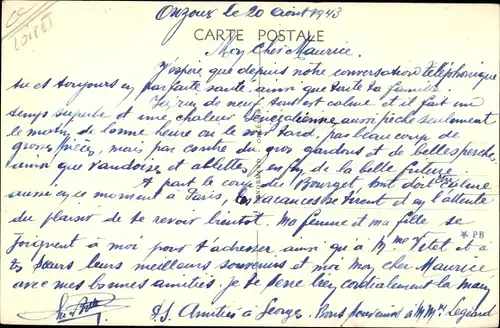 LOIRET
Ouzoux le 20 août 1943
CARTE POSTALE
Mon Cher Maurice.
J'espère que depuis notre conversation téléphonique
tu es toujours en parfaite santé ainsi que toute ta famille.
Ici, rien de neuf tout est calme et il fait un
temps superbe et une chaleur Sénégalienne aussi pêche seulement
le matin de bonne heure ou le soir tard, pas beaucoup de
grosses pièces, mais par contre du gros gardons et de belles perches
ainsi que vandoises et ablettes, enfin de la belle friture
A part le coup du Bourget, tout doit être calme
aussi en ce moment à Paris, les vacances se tirent et en l'attente
du plaisir de te revoir bientôt. Ma femme et ma fille se
* PB
joignent à moi pour t'adresser ainsi qu'à Mme Vetet et à
tes sœurs leurs meilleurs souvenirs et moi mon cher Maurice
avec mes bonnes amitiés, je te serre bien cordialement la main
P.S. Amitiés à Georges. Bons souvenirs à M Mme Legrand